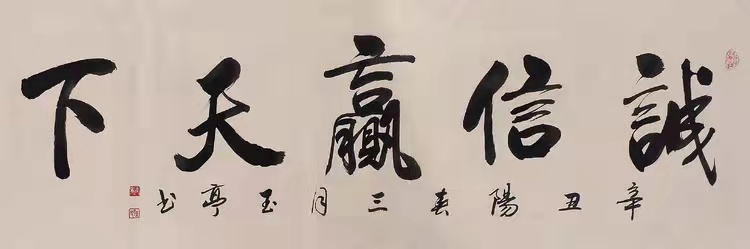 誠信贏天下
辛丑陽春三月玉亭书